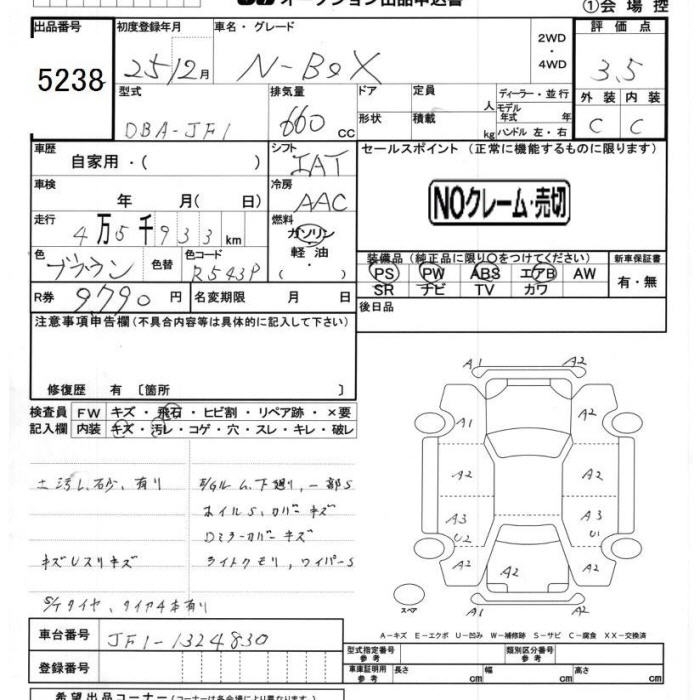 オークション出品申込書
①会場控
出品番号 初度登録年月 車名・グレード 評価点
5238 25 12月 N-BOX 2WD・4WD 3.5
型式 排気量 ドア 定員 人 ディーラー・並行 外装 内装
DBA-JF1 660cc 形状 積載 kg モデル年式 年式 ハンドル 左・右 C C
車歴 シフト セールスポイント (正常に機能するものに限ります)
自家用・( ) IAT
車検 冷房
年 月( 日) AAC NOクレーム・売切
走行 燃料
4万5千933km ガソリン
色 色替 色コード 軽油 装備品 (純正品に限り○をつけてください) 新車保証書
ブラウン R543P ・( ) PS PW ABS エアB AW 有・無
R券 9790円 名変期限 月 日 SR ナビ TV カワ
注意事項申告欄 (不具合内容等は具体的に記入して下さい) 後日品
修復歴 有 〔箇所 〕
検査員 FW キズ・飛石・ヒビ割・リペア跡・×要
記入欄 内装 キズ・汚レ・コゲ・穴・スレ・キレ・破レ
土汚し、石砂、有り E/Gルーム、下廻り、一部S
ホイルS、カバーキズ
Dミラーカバーキズ
キズUスリキズ ライトクモリ、ワイパーS
S/Tタイヤ、タイヤ4本有り
A1 A2
A1 A2
A2 A2
A3 A3
U2 U1
A2 A2 A2
A2
A1 A2
スペア
A-キズ E-エクボ U-凹み W-補修跡 S-サビ C-腐食 XX-交換済
車台番号 JF1-1324830
登録番号
型式指定番号 参考 類別区分番号 参考
車庫証明用 参考 長さ cm 幅 cm 高さ cm
希望出品コーナー